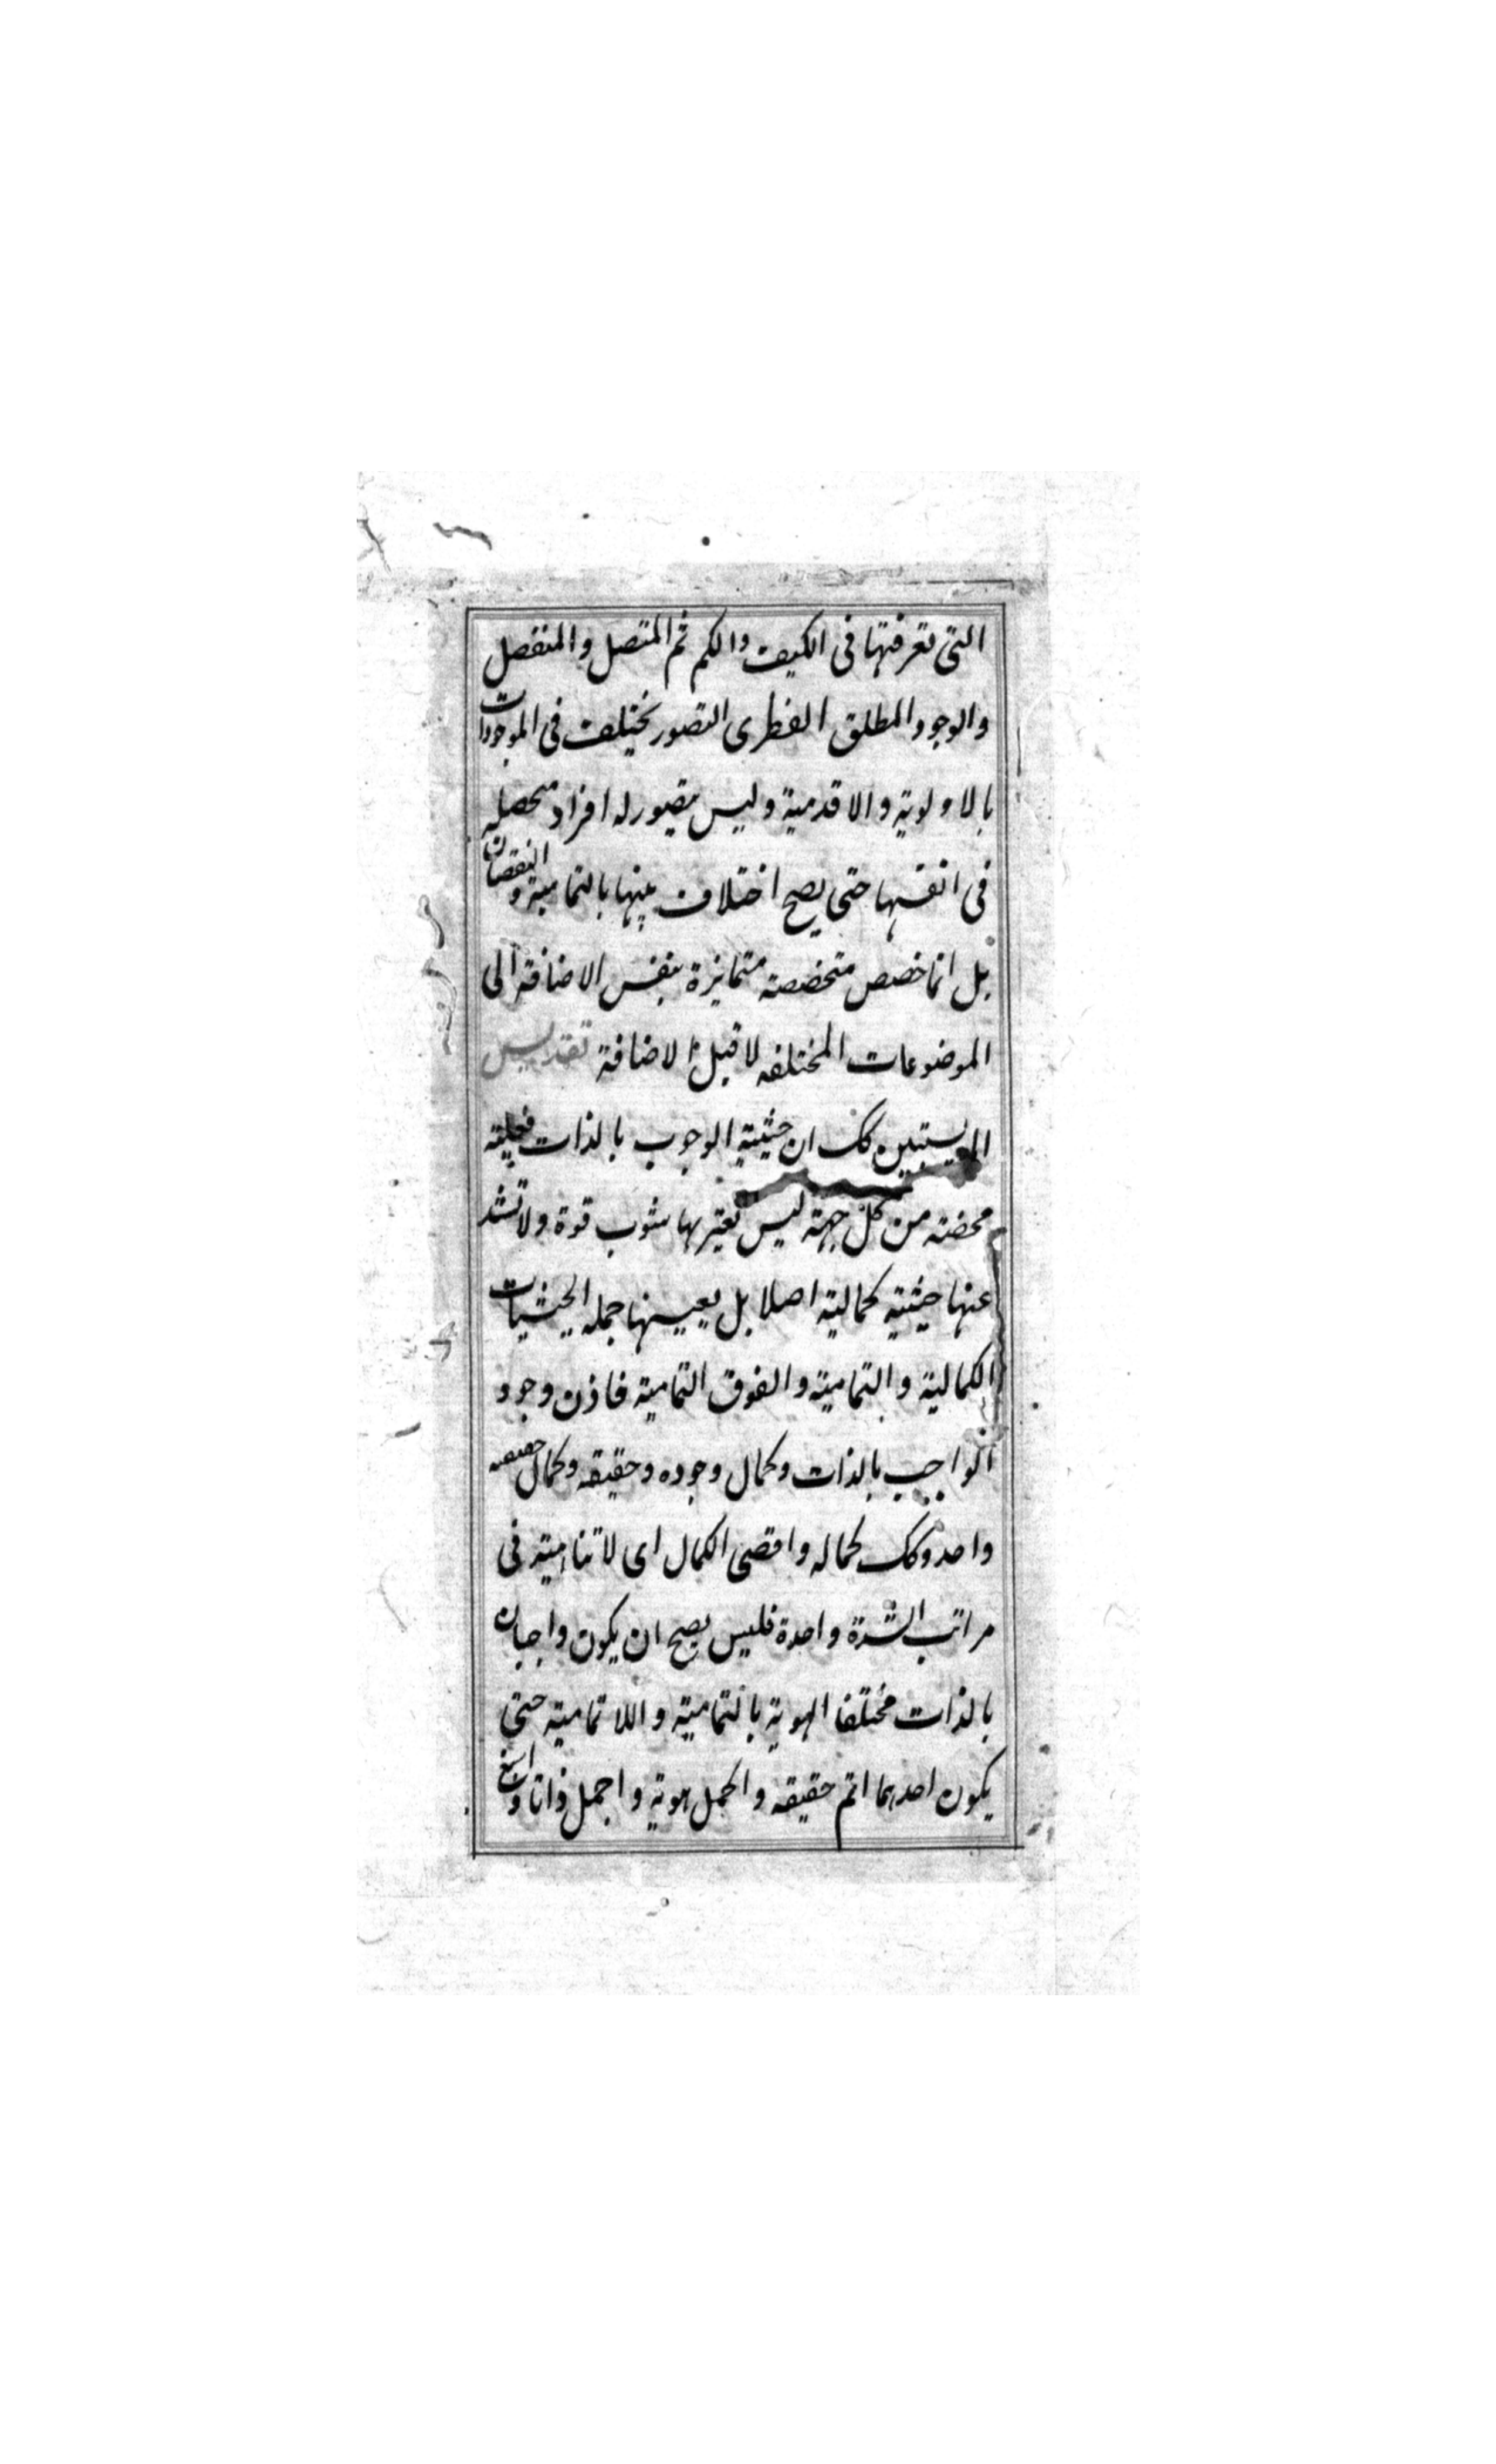 التی تعرفتها فی الکیف والکم ثم المتصل والمنفصل
والوجود المطلق الفطری التصور یختلف فی الموجودات
بالاولویة والاقدمیة ولیس یتصور له افراد متحصله
فی انفسها حتی یصح اختلاف بینها بالتمامیة والنقصان
بل انما حصص متخصصة متمایزة بنفس الاضافة الی
الموضوعات المختلفه لا قبل الاضافة تقدیس
الیستبین لک ان حیثیة الوجوب بالذات فعلیة
محضة من کل جهة لیس تعتریها شوب قوة ولا تشذ
عنها حیثیة کمالیة اصلا بل بعینها جملة الحیثیات
الکمالیة والتمامیة والفوق التمامیة فاذن وجود
الواجب بالذات وکمال وجوده وحقیقه وکمال حقیقه
واحد وکک کماله واقصی الکمال ای لا تناهیة فی
مراتب الشدة واحدة فلیس یصح ان یکون واجبان
بالذات مختلفا الهویة بالتمامیة واللاتمامیة حتی
یکون احدهما اتم حقیقه واکمل هویة واجمل ذاتا و